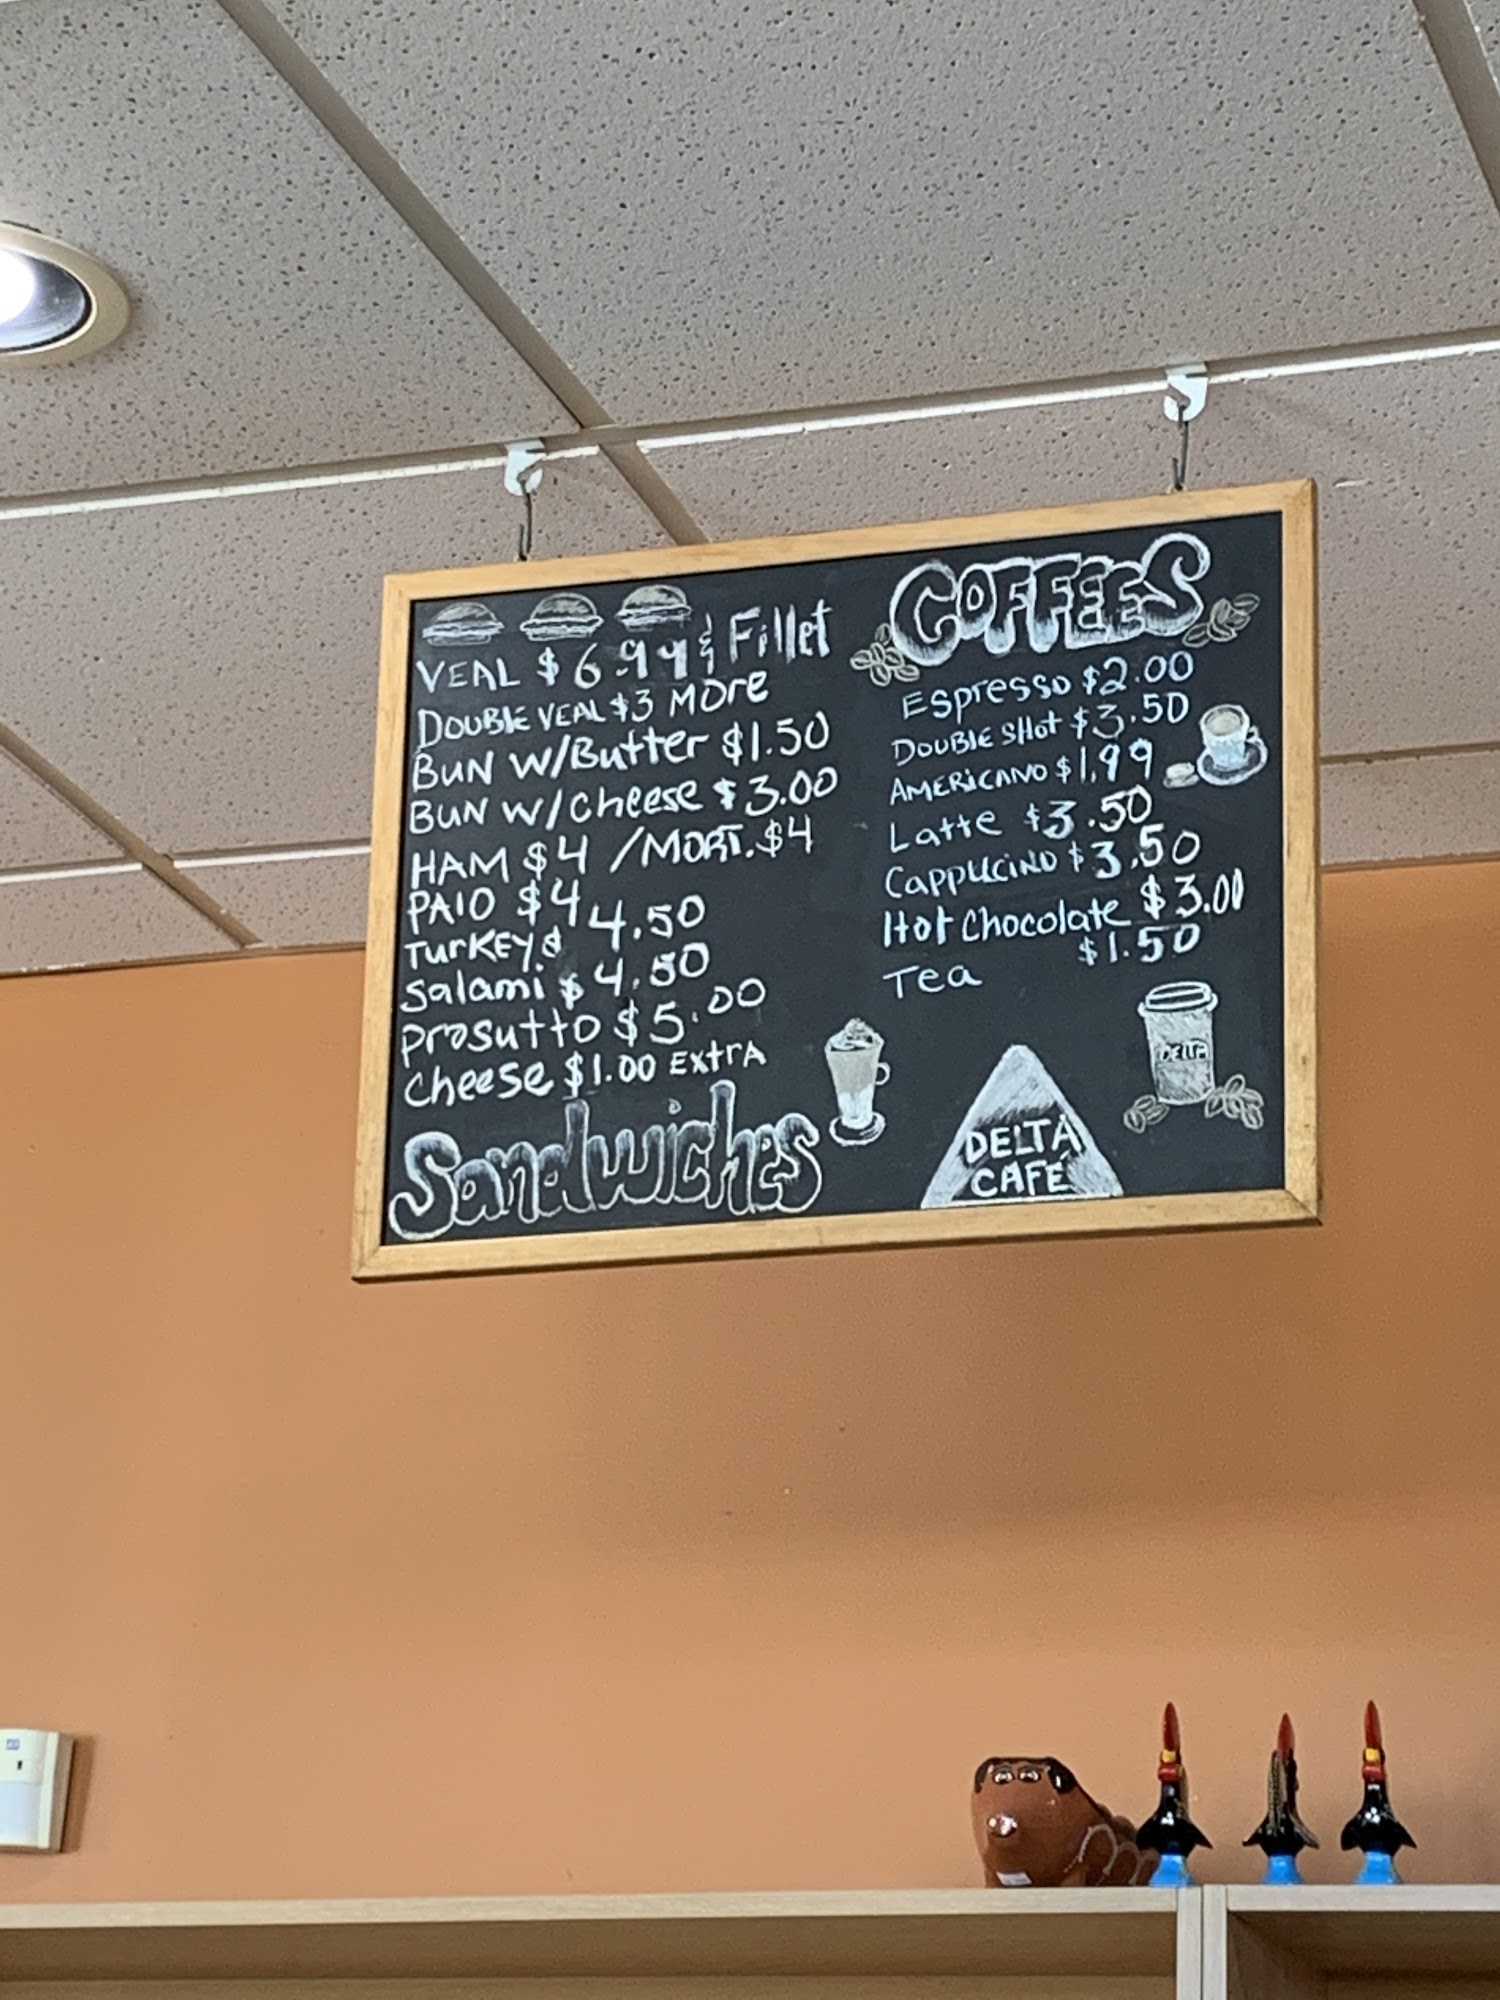 VEAL $6.99 & Fillet
DOUBLE VEAL $3 MORe
BUN W/Butter $1.50
BUN W/cheese $3.00
HAM $4 /MORT. $4
PAIO $4
TurKEY $ 4.50
Salami $ 4.50
Prosutto $5.00
Cheese $1.00 ExtrA
Sandwiches
COFFEES
Espresso $2.00
DOUBLE SHot $3.50
AMERiCANO $1.99
Latte $3.50
CappuciNO $3.50
Hot Chocolate $3.00
Tea $1.50
DELTA
DELTA
CAFÉ